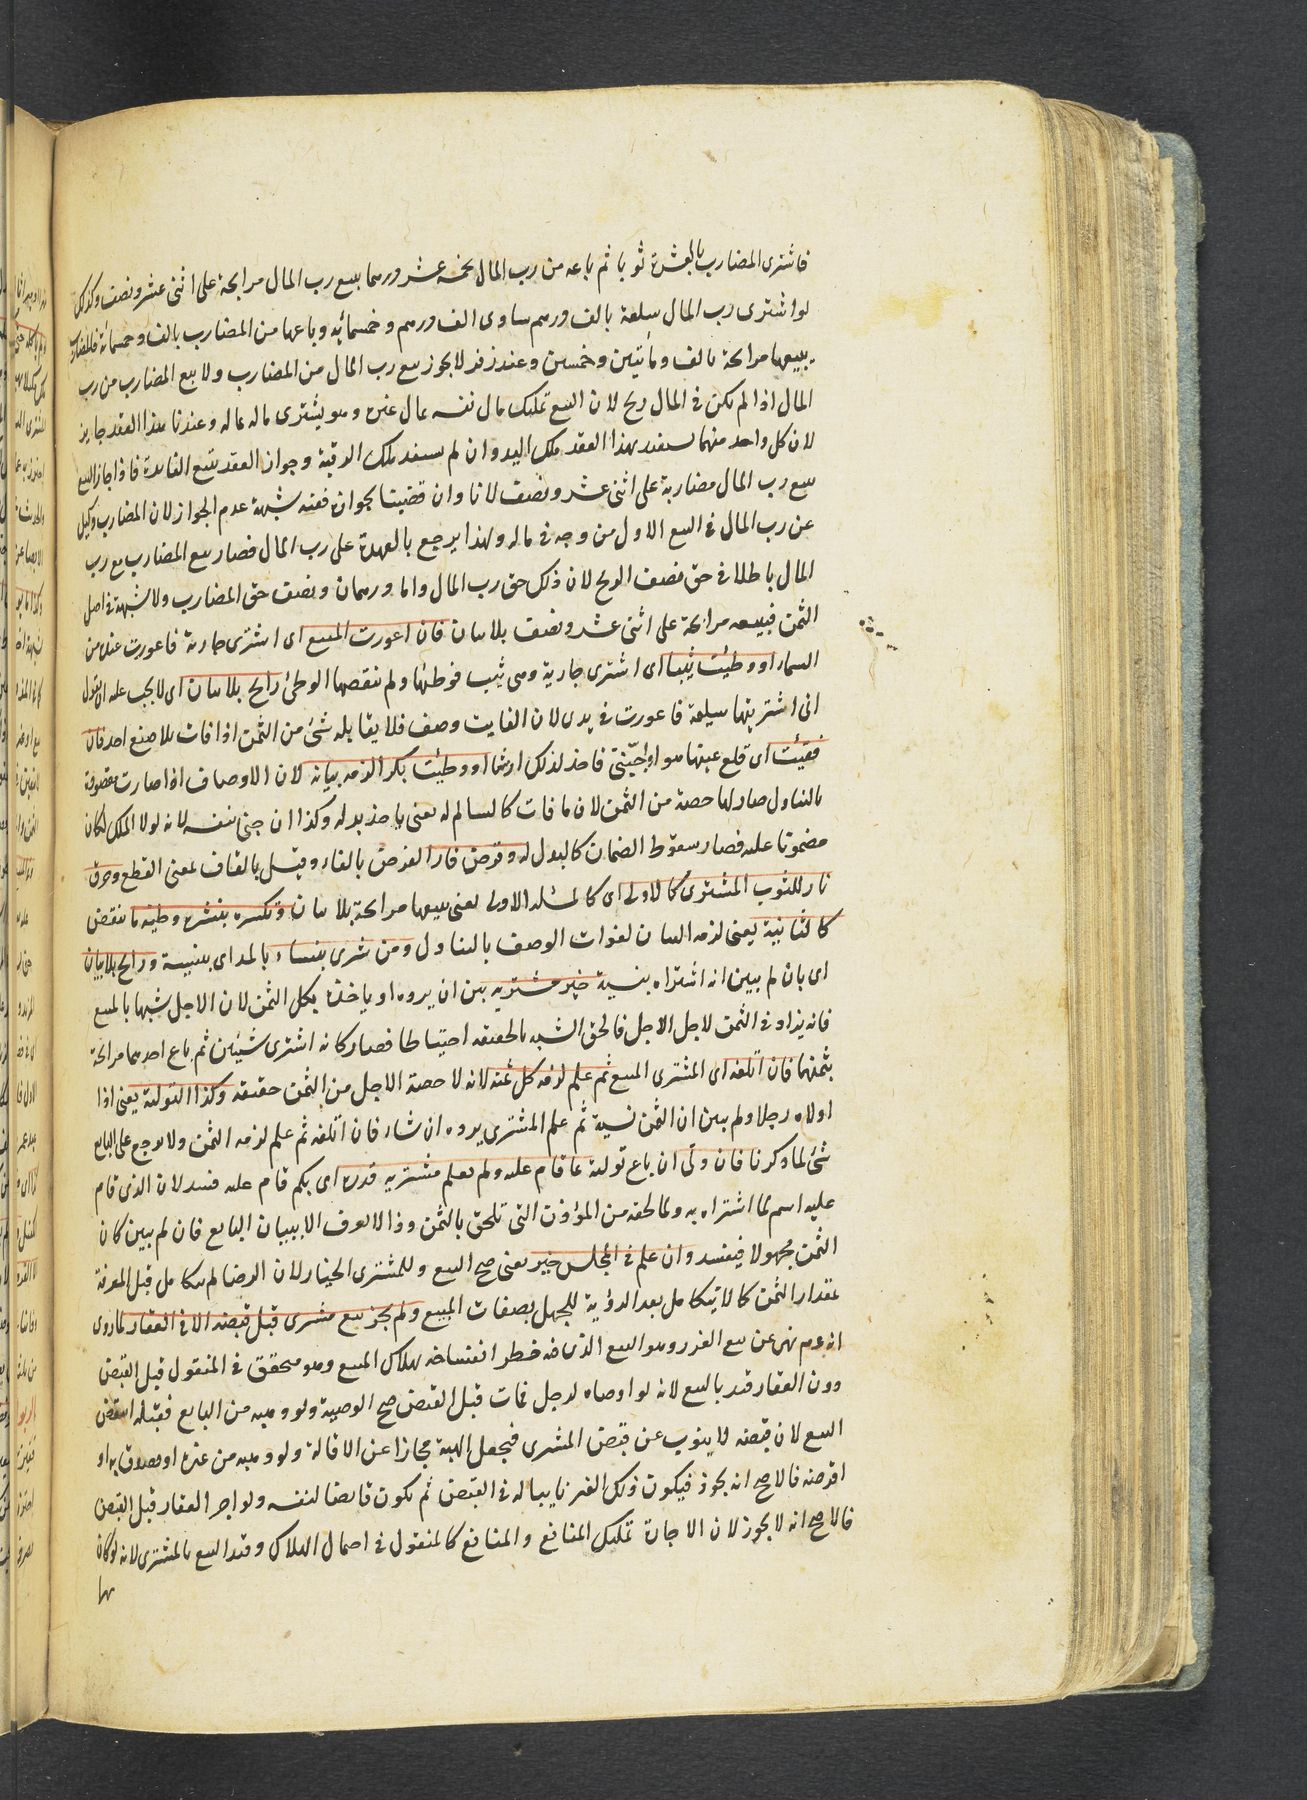 فاشترى المضارب بالعشرة ثوبا ثم باعه من رب المال بخمسة عشر درهما يبيع رب المال مرابحة على اثنى عشر ونصف وكذلك
لو اشترى رب المال سلعة بالف درهم تساوى الف درهم وخمسمائة وباعها من المضارب بالف وخمسمائة فالمضارب
يبيعها مرابحة بالف ومأتيين وخمسين وعند زفر لا يجوز بيع رب المال من المضارب ولا بيع المضارب من رب
المال اذا لم يكن فى المال ربح لان البيع تمليك مال نفسه بمال غيره وهو يشترى ماله بماله وعندنا هذا العقد جايز
لان كل واحد منهما يستفيد بهذا العقد ملك اليد وان لم يستفد ملك الرقبة وجواز العقد يتبع الفايدة فاذا جاز البيع
يبيع رب المال مضاربة على اثنى عشر ونصف لانا وان قضينا بجوازه ففيه شبهة عدم الجواز لان المضارب وكيل
عن رب المال فى البيع الاول من وجه فى ماله ولهذا يرجع بالعهدة على رب المال فصار بيع المضارب مع رب
المال باطلا فى حق نصف الربح لان ذلك حق رب المال واما درهمان ونصف حق المضارب ولا شبهة فى اصل
الثمن فيبيعه مرابحة على اثنى عشر ونصف بلا بيان فان اعورت المبيع اى اشترى جارية فاعورت عنده من
السماء او وطئت ثيبا اى اشترى جارية وهى ثيب فوطئها ولم ينقصها الوطئ رابح بلا بيان اى لا يجب عليه ان يقول
انى اشتريتها سليمة فاعورت فى يدى لان الفايت وصف فلا يقابله شئ من الثمن اذا فات بلا صنع احد فان
فقيئت اى قلع عينها هو او اجنبى فاخذ لذلك ارشا او وطيئت بكرا لزمه بيانه لان الاوصاف اذا صارت مقصودة
بالتناول صار لها حصة من الثمن لان ما فات كالسالم له يعنى ياخذ بدله وكذا ان جنى بنفسه لانه لولا الملك لكان
مضمونا عليه فصار سقوط الضمان كالبدل له وقرض فار القرض بالفاء وقيل بالقاف لمعنى القطع وحرق
نار للثوب المشترى كالاولى اى كالمسئلة الاولى يعنى يبيعها مرابحة بلا بيان وتكسره بنشره وطيه ما ينقص
كالثانية يعنى لزمه البيان لفوات الوصف بالتناول ومن شرى بنساء بالمد اى بنسيئة ورابح بلا بيان
اى بان لم يبين انه اشتراه بنسية خير مشتريه بين ان يرده او ياخذه بكل الثمن لان الاجل شبها بالمبيع
فانه يزاد فى الثمن لاجل الاجل فالحق الشبه بالحقيقة احتياطا فصار كانه اشترى شيئين ثم باع احدهما مرابحة
بثمنهما فان اتلفه اى المشترى المبيع ثم علم لزمه كل ثمنه لانه لا حصة الاجل من الثمن حقيقة وكذا التولية يعنى اذا
اولاه رجلا ولم يبين ان الثمن نسية ثم علم المشترى يرده ان شاء فان اتلفه ثم علم لزمه الثمن ولا يرجع على البايع
شئ لما ذكرنا فان ولى ان باع تولية بما قام عليه ولم يعلم مشتريه قدره اى بكم قام عليه فسد لان الذى قام
عليه اسم لما اشتراه به ولما لحقه من المؤن التى تلحق بالثمن وذا لا يعرف الا ببيان البايع فان لم يبين كان
الثمن مجهولا فيفسد وان علم فى المجلس خير يعنى صح البيع وللمشترى الخيار لان الرضا لم يتكامل قبل المعرفة
بمقدار الثمن كما لا يتكامل بعد الرؤية للجهل بصفات المبيع ولم يجز بيع مشرى قبل قبضه الا فى العقار لما روى
انه عم نهى عن بيع الغرر وهو البيع الذى فيه خطر انفساخه بهلاك المبيع وهو متحقق فى المنقول قبل القبض
دون العقار قيد بالبيع لانه لو اوصاه لرجل فمات قبل القبض صح الوصية ولو وهبه من البايع فقبله انتقض
البيع لان قبضه لا ينوب عن قبض المشرى فيجعل الهبة مجازا عن الاقالة ولو وهبه من غيره او تصدق به او
اقرضه فالاصح انه يجوز فيكون ذلك الغير نايبا له فى القبض ثم يكون قابضا لنفسه ولو اجر العقار قبل القبض
فالاصح انه لا يجوز لان الاجارة تمليك المنافع والمنافع كالمنقول فى احتمال الهلاك وقيد البيع بالمشترى لانه لو كان